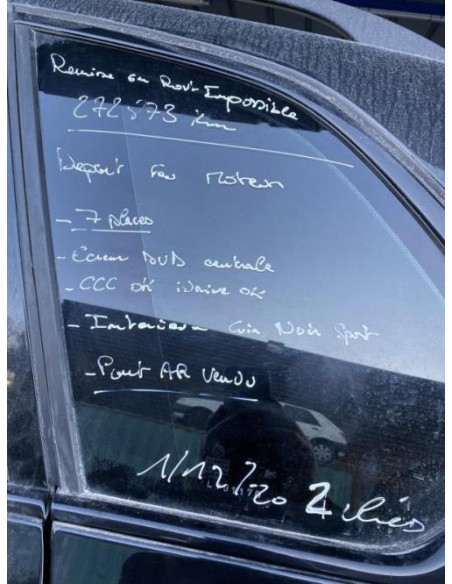 Remise en Rout Impossible
272873 km
Depart Feu Moteur
- 7 places
- Ecran DVD centrale
- CCC OK iDrive OK
- Interieur Cuir Noir Sport
- Pont AR Vendu
1/12/20 2 clés